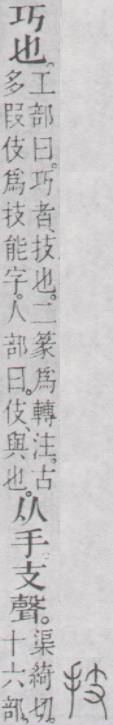 技
巧也。
工部曰。巧者、技也。二篆爲轉注。古
多叚伎爲技能字。人部曰。伎、與也。
从手。支聲。
渠綺切。
十六部。